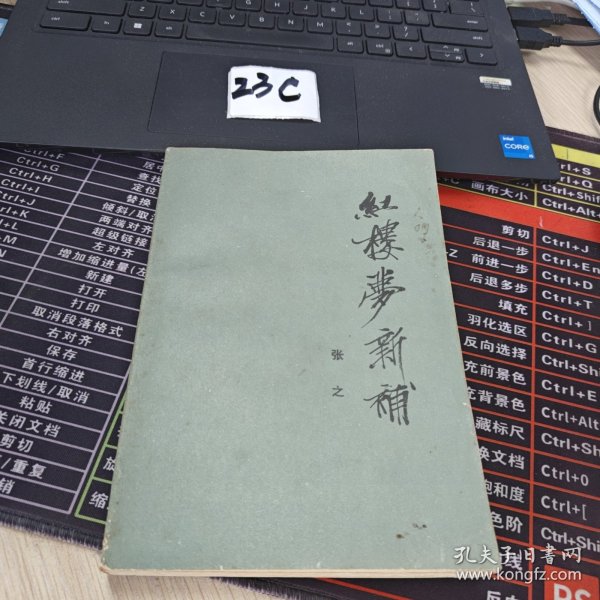 23C
intel
CORE
i5
紅樓夢新補
张之
Ctrl+F
Ctrl+G
Ctrl+H
Ctrl+I
Ctrl+J
Ctrl+K
Ctrl+L
Ctrl+M
查找
定位
替换
倾斜/取消
两端对齐
超级链接
左对齐
增加缩进量(左
新建
打开
打印
取消段落格式
右对齐
保存
首行缩进
下划线/取消
粘贴
关闭文档
剪切
/重复
销
画布大小
Ctrl+S
Ctrl+Q
Ctrl+Shift
Ctrl+Alt+
剪切 Ctrl+J
后退一步 Ctrl+En
前进一步 Ctrl+D
后退多步 Ctrl+T
填充 Ctrl+]
羽化选区 Ctrl+G
反向选择 Ctrl+Shi
充前景色 Ctrl+E
充背景色 Ctrl+Alt
藏标尺 Ctrl+Sh
换文档 Ctrl+0
饱和度 Ctrl+[
色阶 Ctrl+Shi
线
反向
PS
孔夫子旧书网
www.kongfz.com